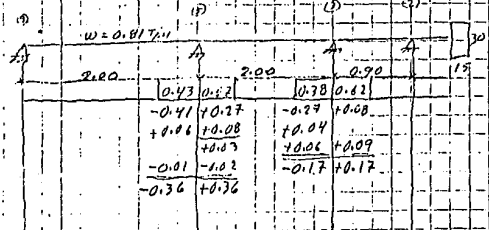 (9) (8) (3) (2)
w = 0.81 T/m
30
15
2.00 2.00 0.90
0.43 0.38 0.62
-0.41 +0.27 -0.27 +0.08
+0.06 +0.08 +0.04
+0.03 +0.06 +0.09
-0.01 -0.02 -0.17 +0.17
-0.36 +0.36